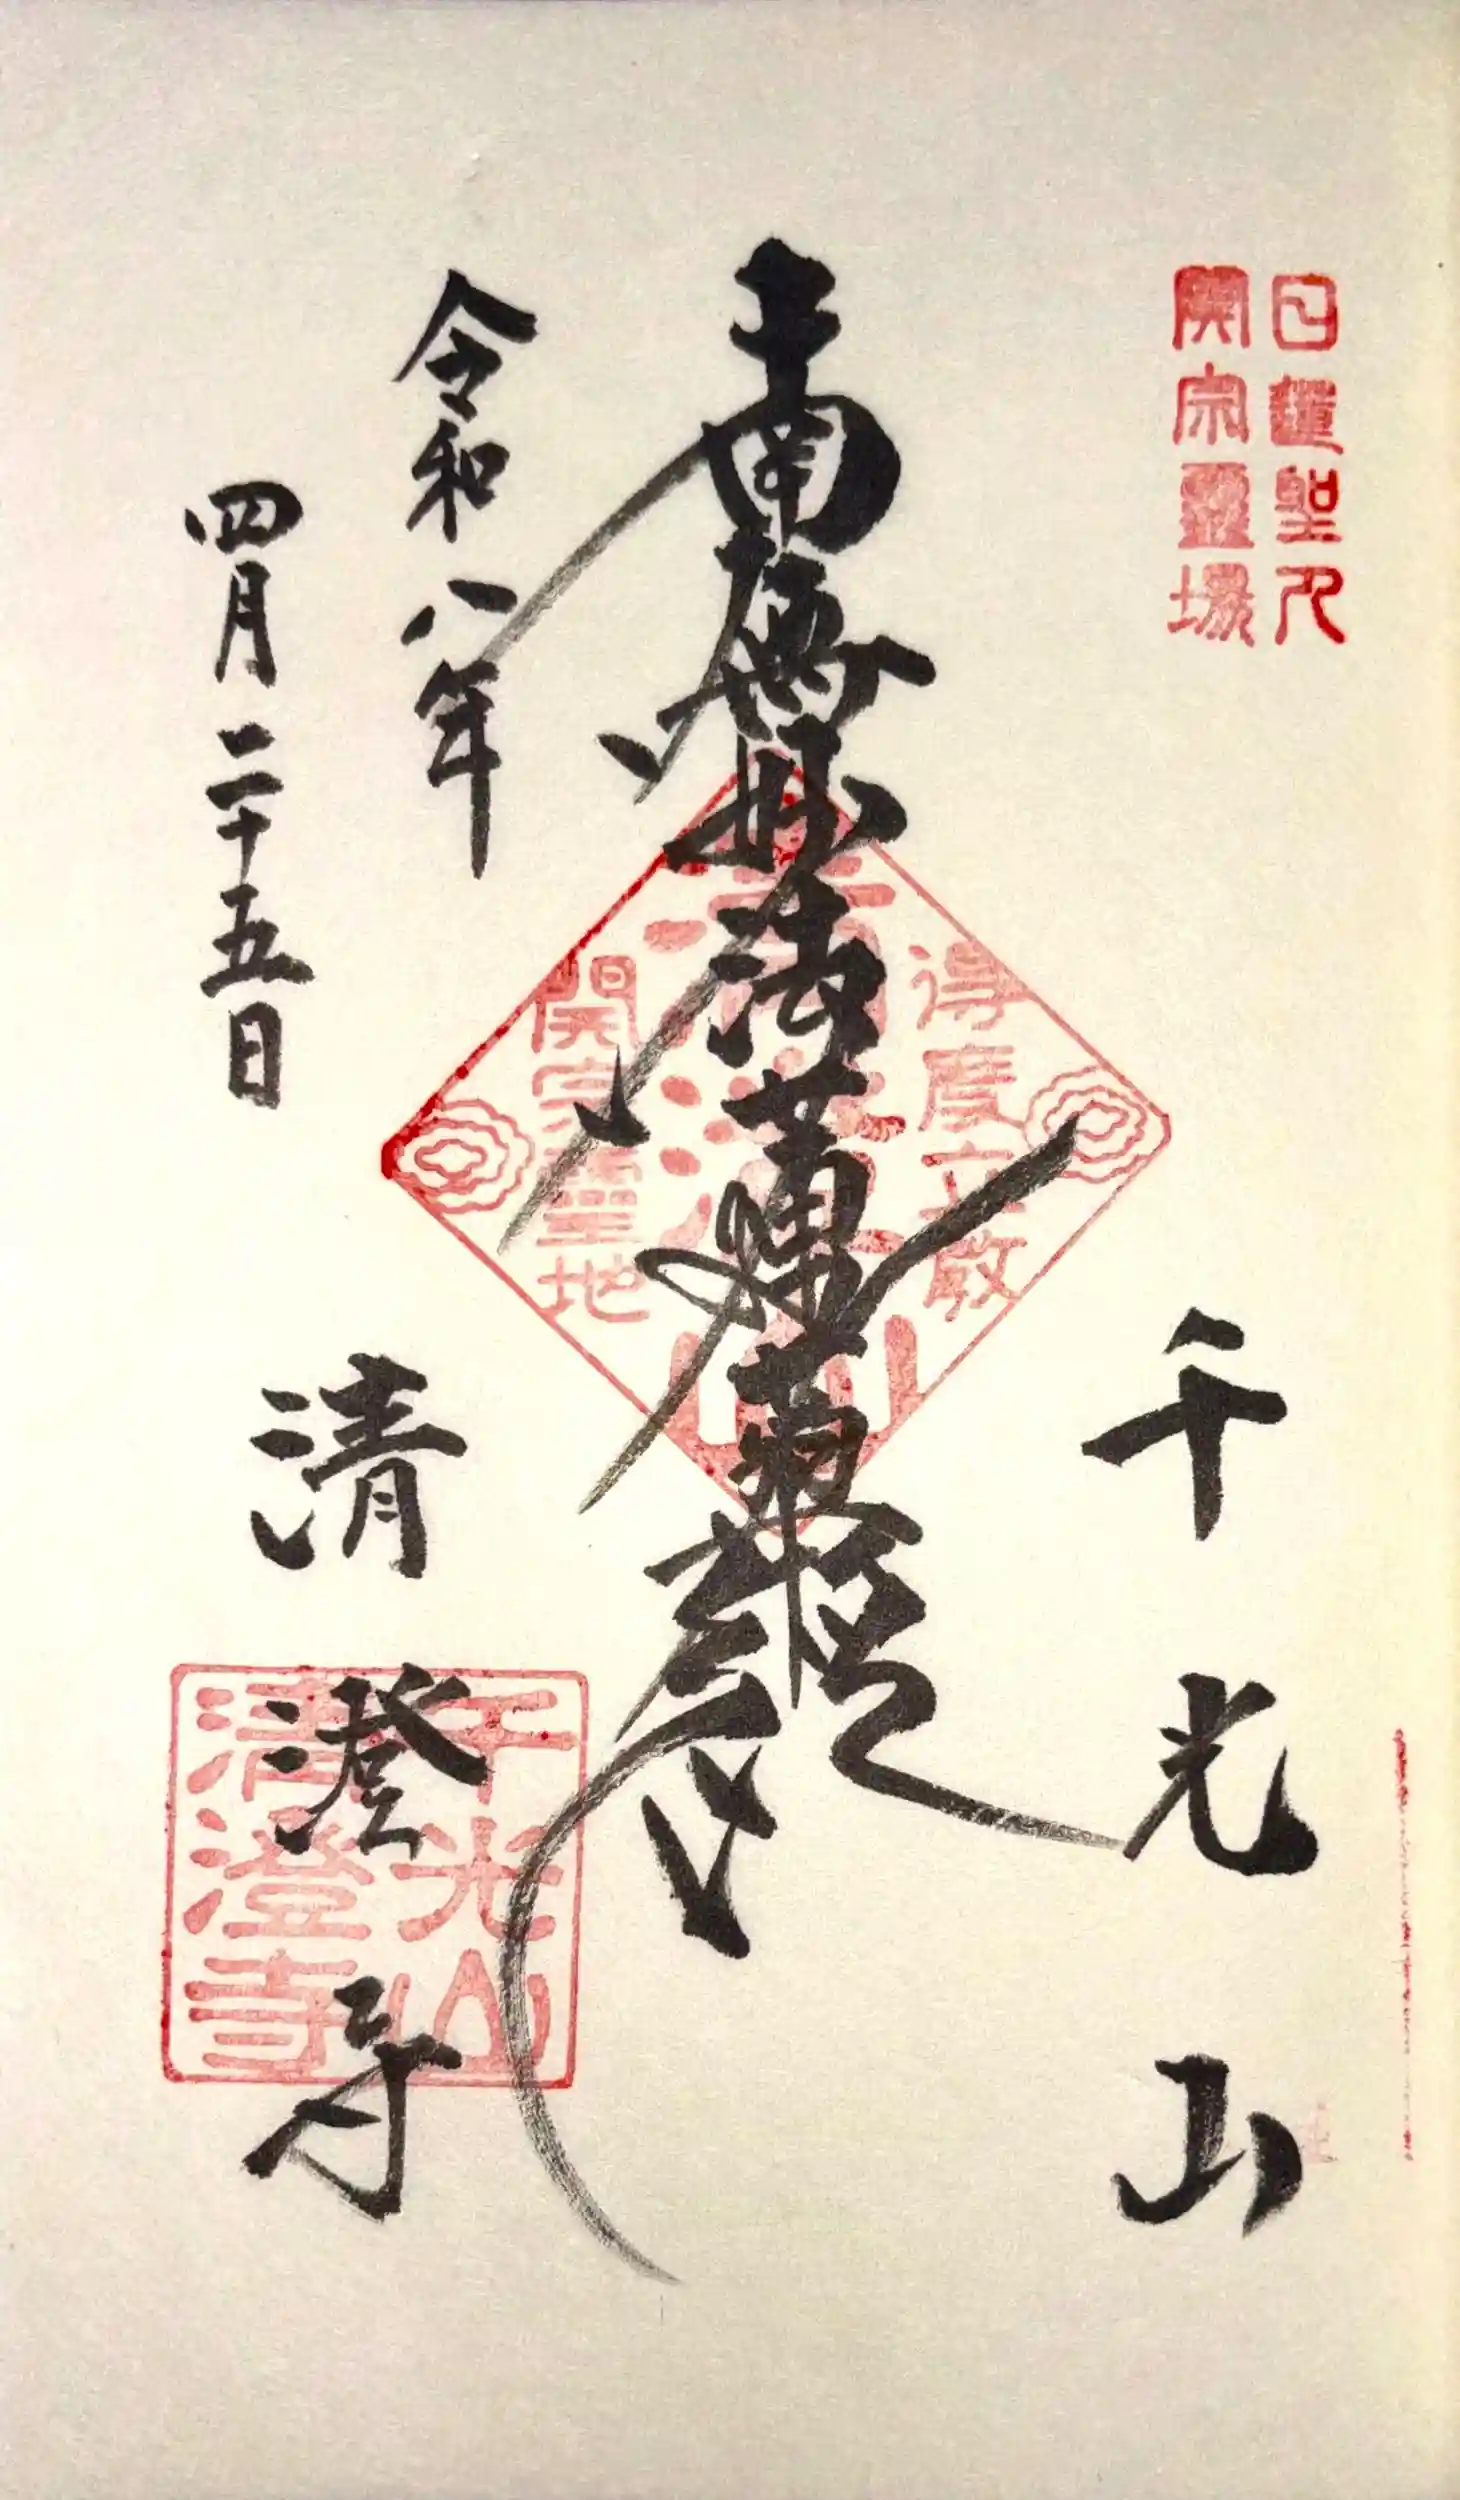 日蓮聖人
開宗霊場
千光山
南無妙法蓮華経
得度立教
清澄山
開宗霊地
令和八年
四月二十五日
清澄寺
千光山
清澄寺